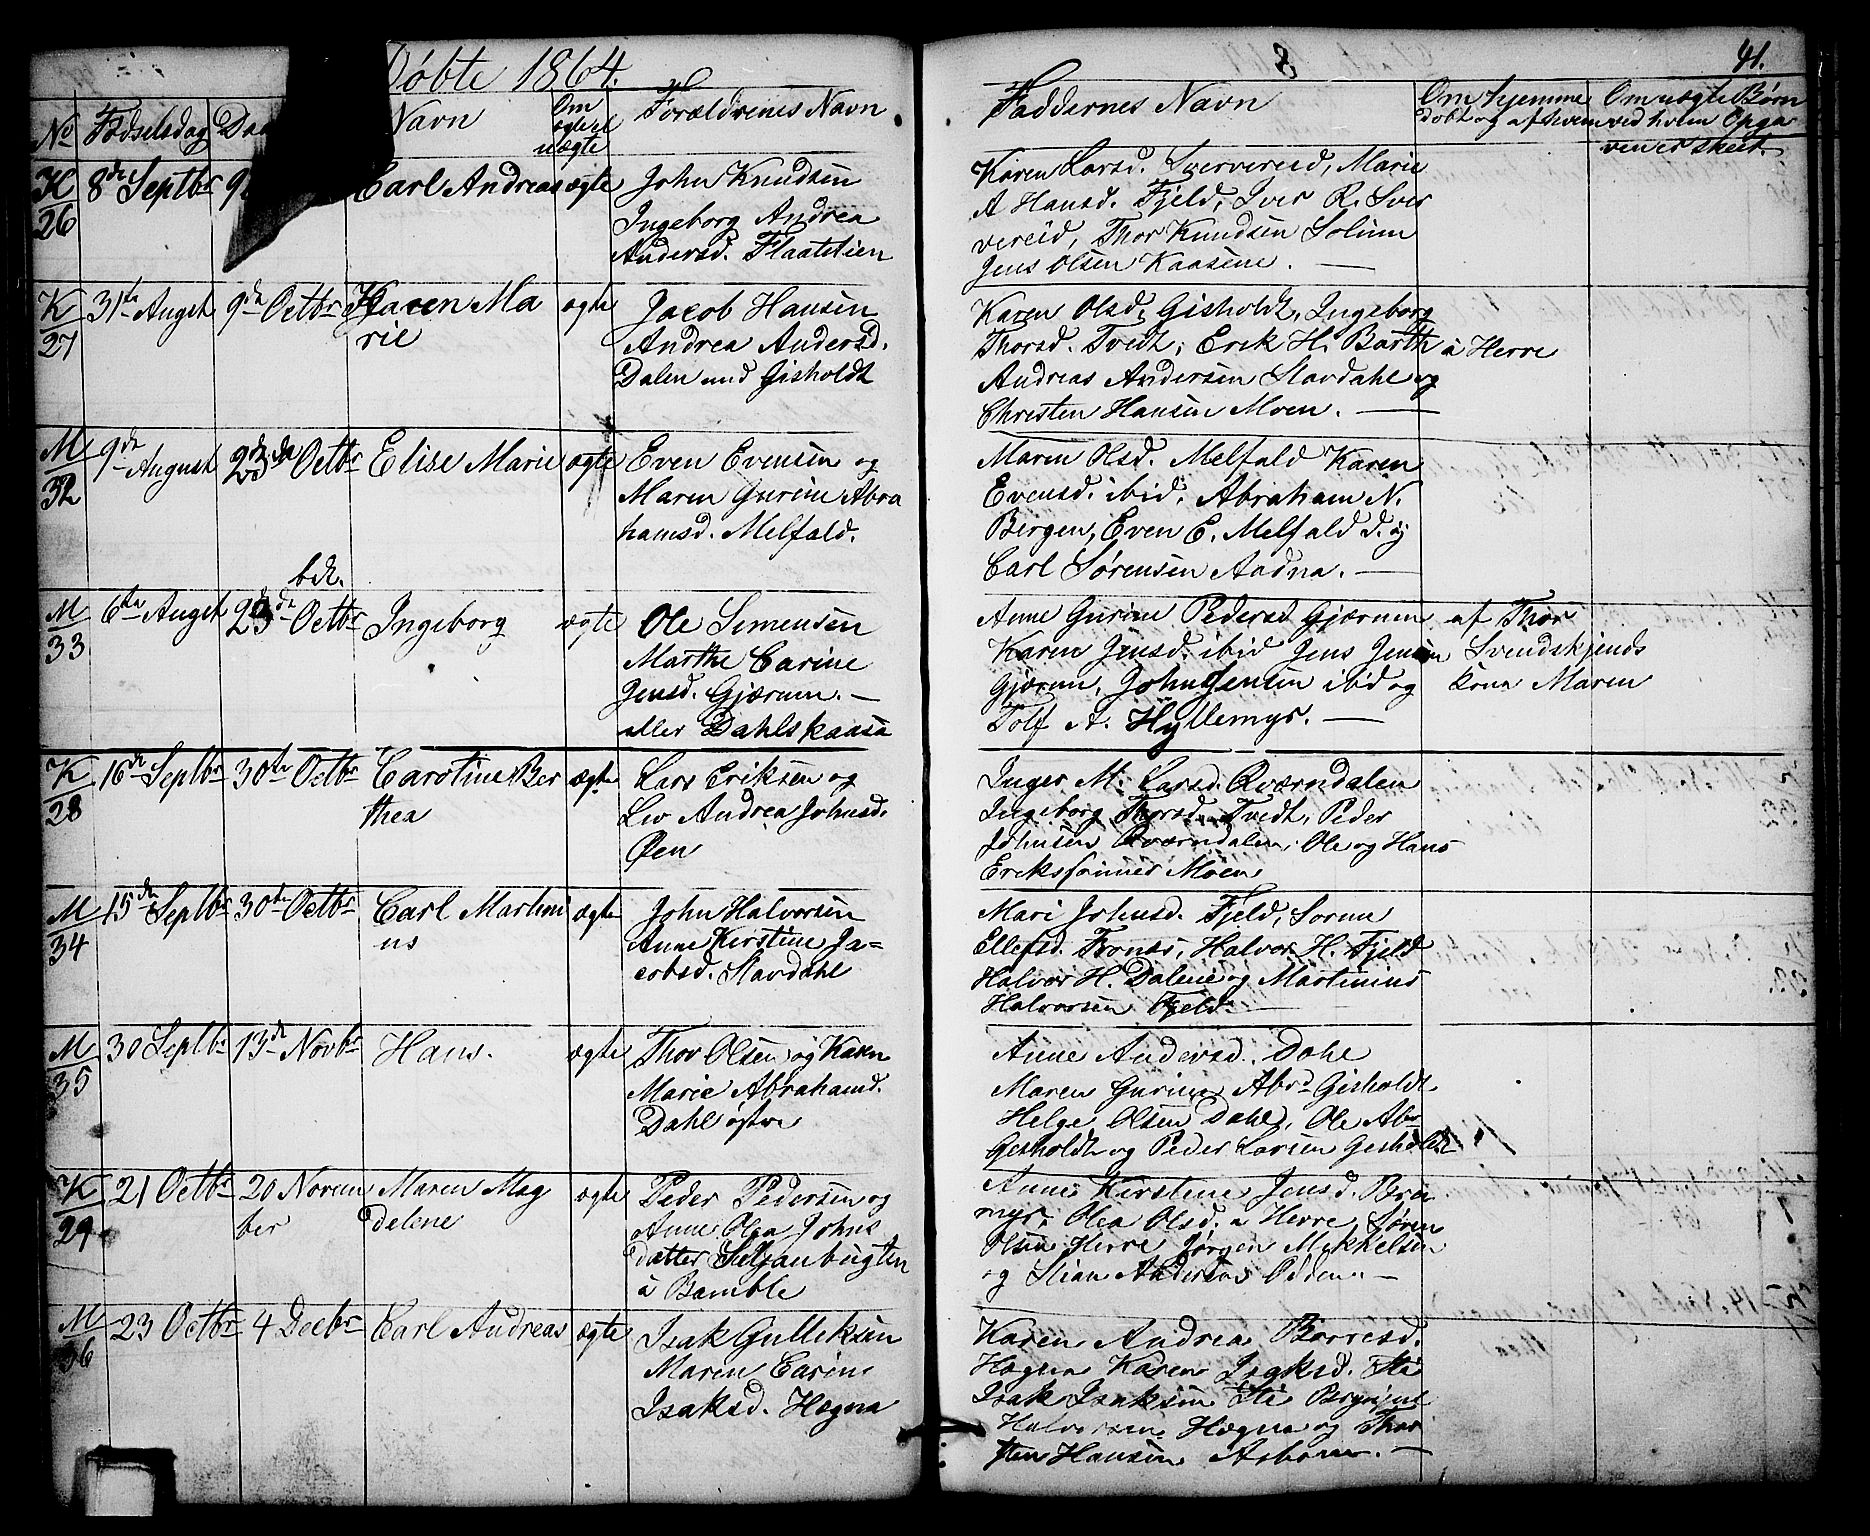 Døbte 1864.
41.
No Fødselsdag Navn Om ægte el uægte Forældrenes Navn
Faddernes Navn Om hjemme Om uægte Børn
døbt og af hvem ved hvem Opga
ven er skeet.
K 26 8de Septbr Carl Andreas ægte John Knudsen
Ingeborg Andrea
Andersd. Flaatetien
Karen Larsd. Sververeid, Marie
A Hansd. Fjeld, Iver R. Sver
vereid, Thor Knudsen Solum
Jens Olsen Kaasene.
K 27 31te Augst 9de Octbr Karen Ma
rie
ægte Jacob Hansen
Andrea Andersd.
Dalen und Gisholdt
Karen Olsd. Gisholdt, Ingeborg
Thorsd. Tvedt, Erik H. Barth à Herre
Andreas Andersen Stavdahl og
Christen Hansen Moen.
M 32 9de August 23de Octbr Elise Marie ægte Even Evensen og
Maren Gurine Abra
hamsd. Melfald.
Maren Olsd. Melfald Karen
Evensd. ibid, Abraham N.
Bergen, Even E. Melfald d. y
Carl Sørensen Aadna.
M 33 6te Augst 23de Octbr Ingeborg ægte Ole Simensen
Marthe Carine
Jensd. Gjærum.
eller Dahlskaasa
Anne Gurine Pedersd Gjærum af Thor
Karen Jensd. ibid Jens Jensen Svendskjends
Gjærum, John Jensen ibid og kone Maren
Tolf A. Hyllemyr.
K 28 16de Septbr 30te Octbr Caroline Ber
thea
ægte Lars Eriksen og
Liv Andrea Johnsd.
Øen
Inger M. Larsd. Qværndalen
Ingeborg Thorsd. Tvedt, Peder
Johnsen Qværndalen, Ole og Hans
Erikssønner Moen
M 34 15de Septbr 30te Octbr Carl Martini
us
ægte John Halvorsen
Anne Kirstine Ja=
cobsd. Stavdahl
Mari Johnsd. Fjeld, Sørine
Ellefsd. Tornæs, Halvor H. Fjeld
Halvor H. Dalene og Martinius
Halvorsen Fjeld
M 35 30 Septbr 13de Novbr Hans. ægte Thor Olsen og Karen
Marie Abrahamd.
Dahl østre
Anne Andersd. Dahl
Maren Gurine Abrd Gisholdt
Helge Olsen Dahl, Ole Abr
Gisholdt og Peder Larsen Gisholdt
K 29 21 Octbr 20 Novem
ber
Maren Mag
dalene
ægte Peder Pedersen og
Anne Olea Johns
datter Seljanbugten
à Bamble
Anne Kirstine Jensd. Bræ
myr, Olea Olsd. à Herre, Søren
Olsen Herre Jørgen Mikkelsen
og Stian Andersens Odden.
M 36 23 Octbr 4 Decbr Carl Andreas ægte Isak Gulliksen
Maren Carine
Isaksd. Høgna
Karen Andrea Borresd.
Høgna Karen Isaksd. Sti
Isak Isaksen Sti
Halvorsen Høgna og Thor
sten Hansen Asbom.